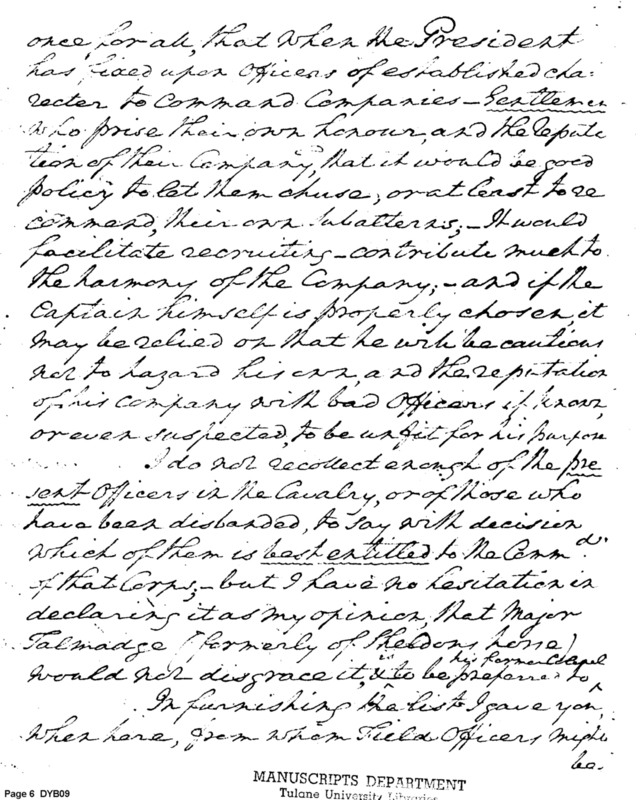 once, for all, that when the President
has fixed upon Officers of established cha:
racter to command Companies – Gentlemen
who prise their own honour, and the reputa
tion of their Company, that it would be good
policy to let them chuse, or at least to re
command, their own Subalterns; – It would
facilitate recruiting – contribute much to
the harmony of the Company; – and if the
Captain himself is properly chosen, it
may be relied on that he will be cautious
not to hazard his own, and the reputation
of his company with bad Officers if known,
or even suspected, to be unfit for his purpose
I do not recollect enough of the pre
sent Officers in the Cavalry, or of those who
have been disbanded, to say with decision
which of them is best entitled to the Commd.
of that Corps; – but I have no hesitation in
declaring it as my opinion, that Major
Talmadge (formerly of Sheldons horse)
would not disgrace it, & is to be preferred to his former Colonel
In furnishing the list I gave you,
when here, from whom Field Officers might
be
MANUSCRIPTS DEPARTMENT
Tulane University Libraries
Page 6 DYB09